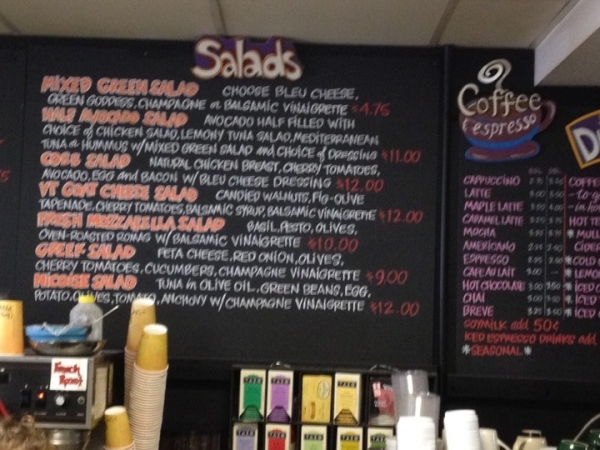 Salads
MIXED GREEN SALAD CHOOSE BLEU CHEESE,
GREEN GODDESS, CHAMPAGNE or BALSAMIC VINAIGRETTE $4.75
HALF AVOCADO SALAD AVOCADO HALF FILLED WITH
CHOICE of CHICKEN SALAD, LEMONY TUNA SALAD, MEDITERRANEAN
TUNA or HUMMUS W/MIXED GREEN SALAD and CHOICE of DRESSING $11.00
COBB SALAD NATURAL CHICKEN BREAST, CHERRY TOMATOES,
AVOCADO, EGG and BACON W/ BLEU CHEESE DRESSING $12.00
VT GOAT CHEESE SALAD CANDIED WALNUTS, FIG-OLIVE
TAPENADE, CHERRY TOMATOES, BALSAMIC SYRUP, BALSAMIC VINAIGRETTE $12.00
FRESH MOZZARELLA SALAD BASIL, PESTO, OLIVES,
OVEN-ROASTED ROMAS W/ BALSAMIC VINAIGRETTE $10.00
GREEK SALAD FETA CHEESE, RED ONION, OLIVES,
CHERRY TOMATOES, CUCUMBERS, CHAMPAGNE VINAIGRETTE $9.00
NICOISE SALAD TUNA in OLIVE OIL, GREEN BEANS, EGG,
POTATO, OLIVES, TOMATO, ANCHOVY W/CHAMPAGNE VINAIGRETTE $12.00
Coffee
espresso
CAPPUCCINO
LATTE
MAPLE LATTE
CARAMEL LATTE
MOCHA
AMERICANO
ESPRESSO
CAFE AU LAIT
HOT CHOCOLATE
CHAI
BREVE
SOYMILK add 50¢
ICED ESPRESSO DRINKS add
*SEASONAL*
COFFEE
-to-g
HOT TE
*MULL
CIDER
*COLD
*LEMON
*ICED
*ICED
*ICED
French
Roast
TAZO
TAZO
TAZO